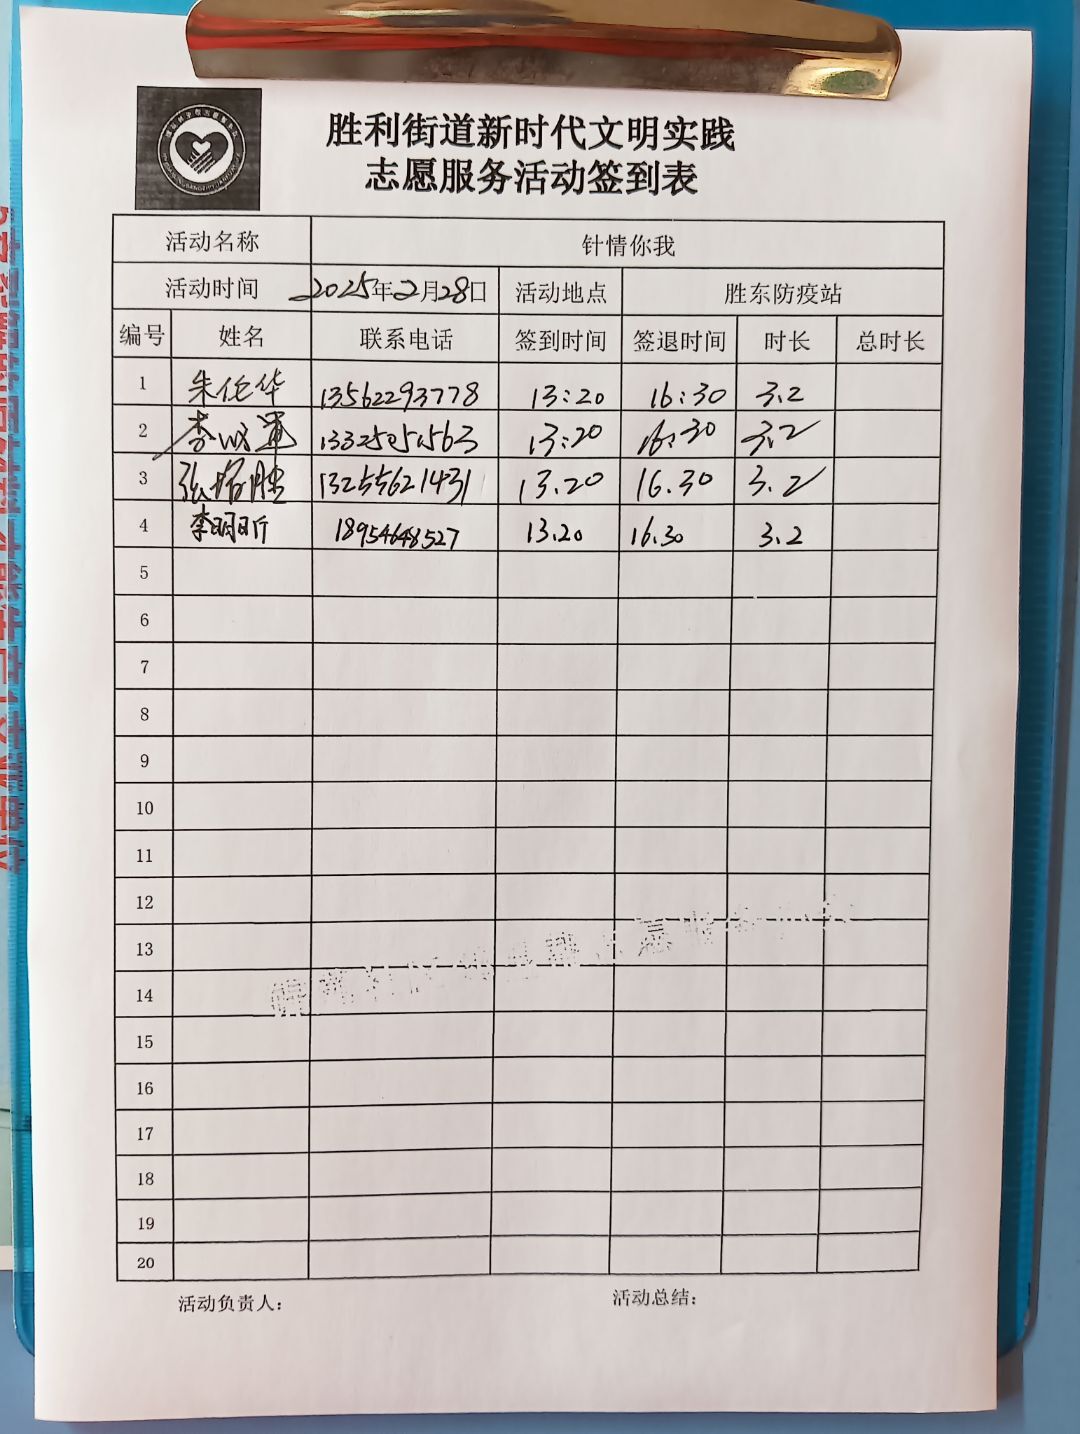 胜利街道新时代文明实践
志愿服务活动签到表
活动名称 针情你我
活动时间 2025年2月28日 活动地点 胜东防疫站
编号 姓名 联系电话 签到时间 签退时间 时长 总时长
1 朱伦华 13562293778 13:20 16:30 3.2
2 李 13325051563 13:20 16:30 3.2
3 张 胜 13255621431 13.20 16.30 3.2
4 李明昕 18954648527 13.20 16.30 3.2
5
6
7
8
9
10
11
12
13
14
15
16
17
18
19
20
活动负责人： 活动总结：